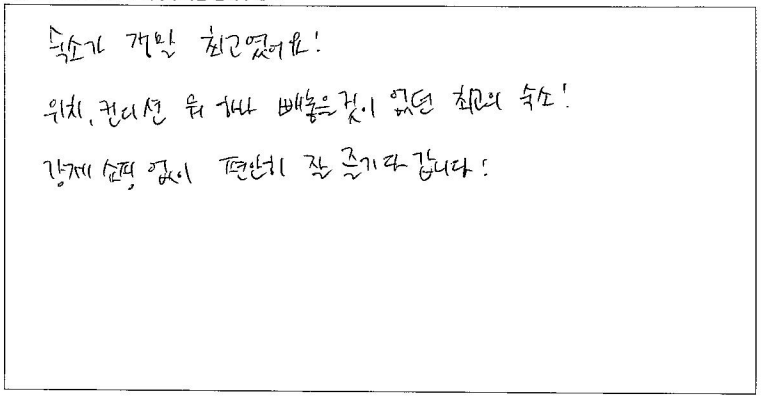 숙소가 정말 최고였어요!
위치, 컨디션 뭐 하나 빼놓을것이 없던 최고의 숙소!
강제쇼핑 없이 편안히 잘 즐기다 갑니다!